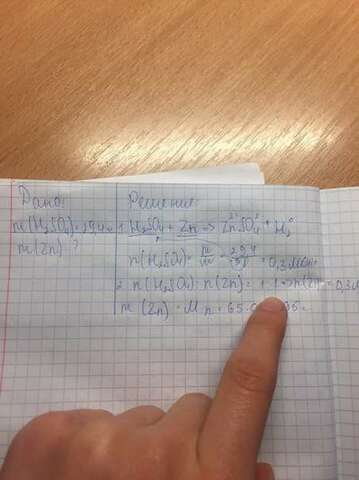 Дано:
m(H₂SO₄)=29,4г
m(Zn)-?
Решение:
1 H₂SO₄ + Zn → ZnSO₄ + H₂
n(H₂SO₄)= m/M = 29,4/98 = 0,3 моль
2 n(H₂SO₄):n(Zn)= 1:1 => n(Zn)=0,3
m(Zn)=M n = 65